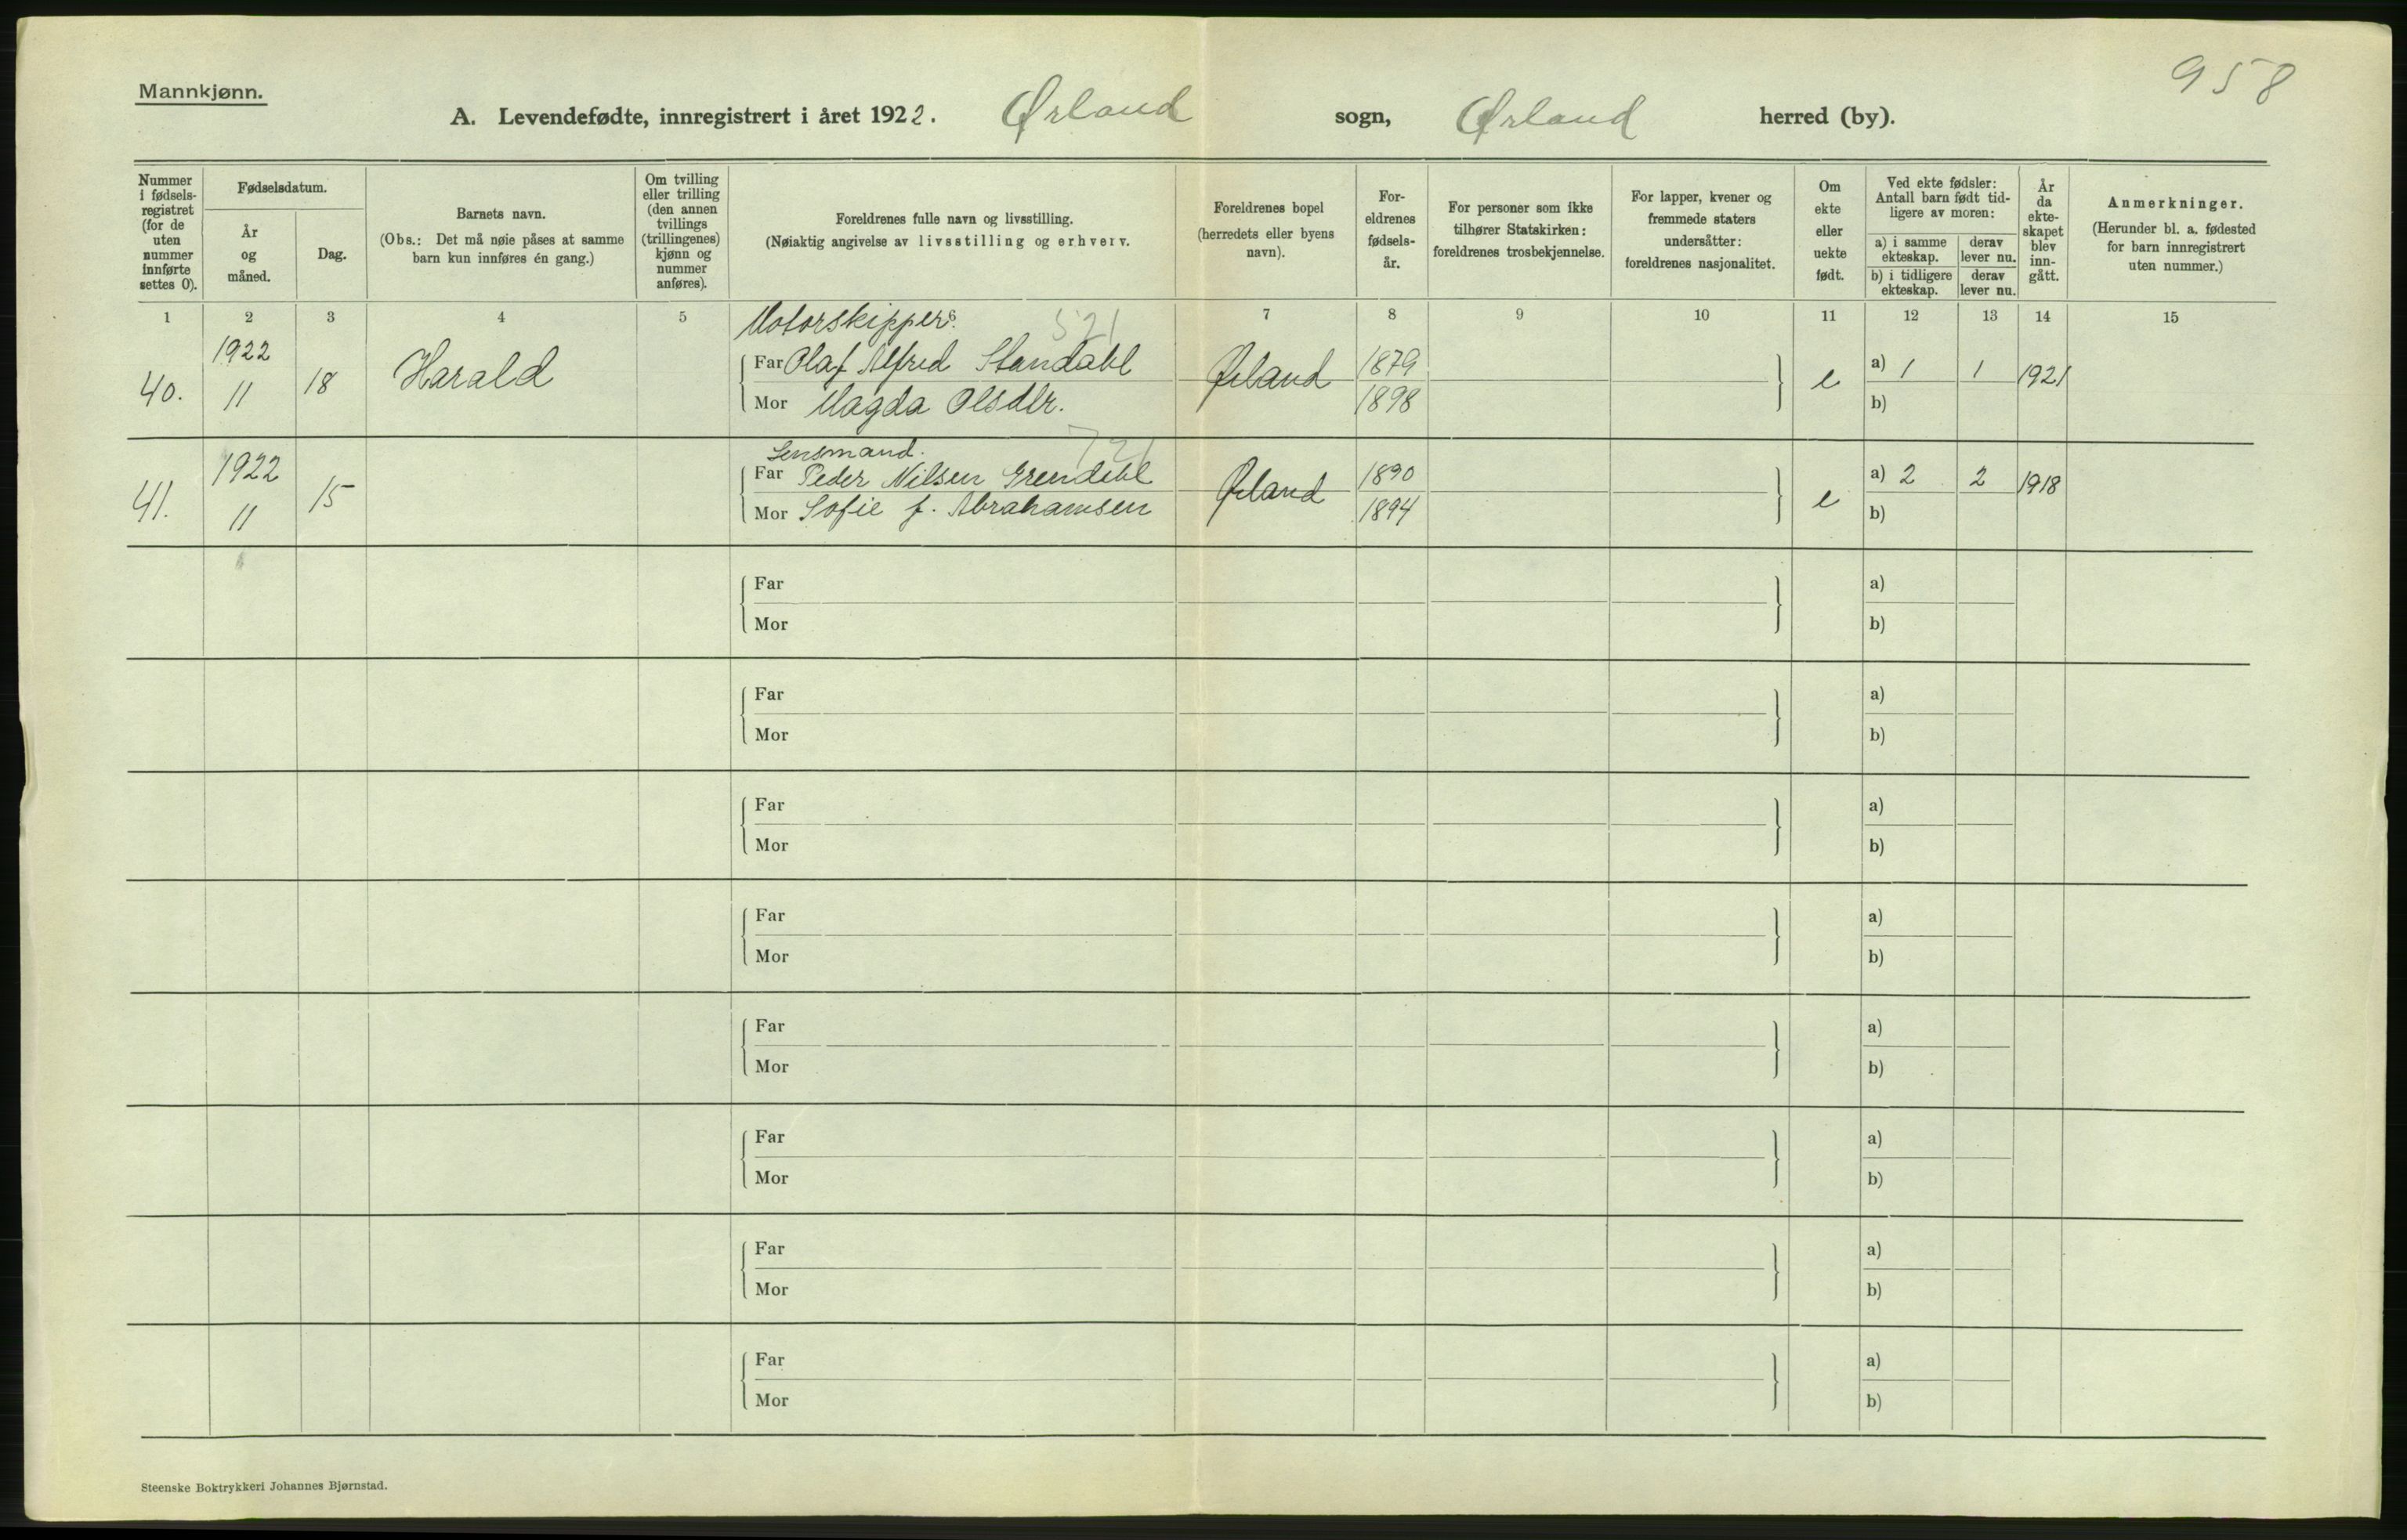 958
Mannkjønn.
A. Levendefødte, innregistrert i året 1922. Ørland sogn, Ørland herred (by).
Nummer i fødsels-registret (for de uten nummer innførte settes 0).
Fødselsdatum.
År og måned.
Dag.
Barnets navn.
(Obs.: Det må nøie påses at samme barn kun innføres én gang.)
Om tvilling eller trilling (den annen tvillings (trillingenes) kjønn og nummer anføres).
Foreldrenes fulle navn og livsstilling.
(Nøiaktig angivelse av livsstilling og erhverv.
Foreldrenes bopel (herredets eller byens navn).
For-eldrenes fødsels-år.
For personer som ikke tilhører Statskirken: foreldrenes trosbekjennelse.
For lapper, kvener og fremmede staters undersåtter: foreldrenes nasjonalitet.
Om ekte eller uekte født.
Ved ekte fødsler: Antall barn født tid-ligere av moren:
a) i samme ekteskap.
derav lever nu.
b) i tidligere ekteskap.
derav lever nu.
År da ekte-skapet blev inn-gått.
Anmerkninger.
(Herunder bl. a. fødested for barn innregistrert uten nummer.)
1 2 3 4 5 6 7 8 9 10 11 12 13 14 15
Motorskipper. 521
40. 1922 11 18 Harald
Far Olaf Alfred Standahl Ørland 1879 e a) 1 1 1921
Mor Magda Olsdtr. 1898 b)
Lensmand. 721
41. 1922 11 15
Far Peder Nilsen Grendehl Ørland 1890 e a) 2 2 1918
Mor Sofie f. Abrahamsen 1894 b)
Far a)
Mor b)
Far a)
Mor b)
Far a)
Mor b)
Far a)
Mor b)
Far a)
Mor b)
Far a)
Mor b)
Far a)
Mor b)
Far a)
Mor b)
Steenske Boktrykkeri Johannes Bjørnstad.